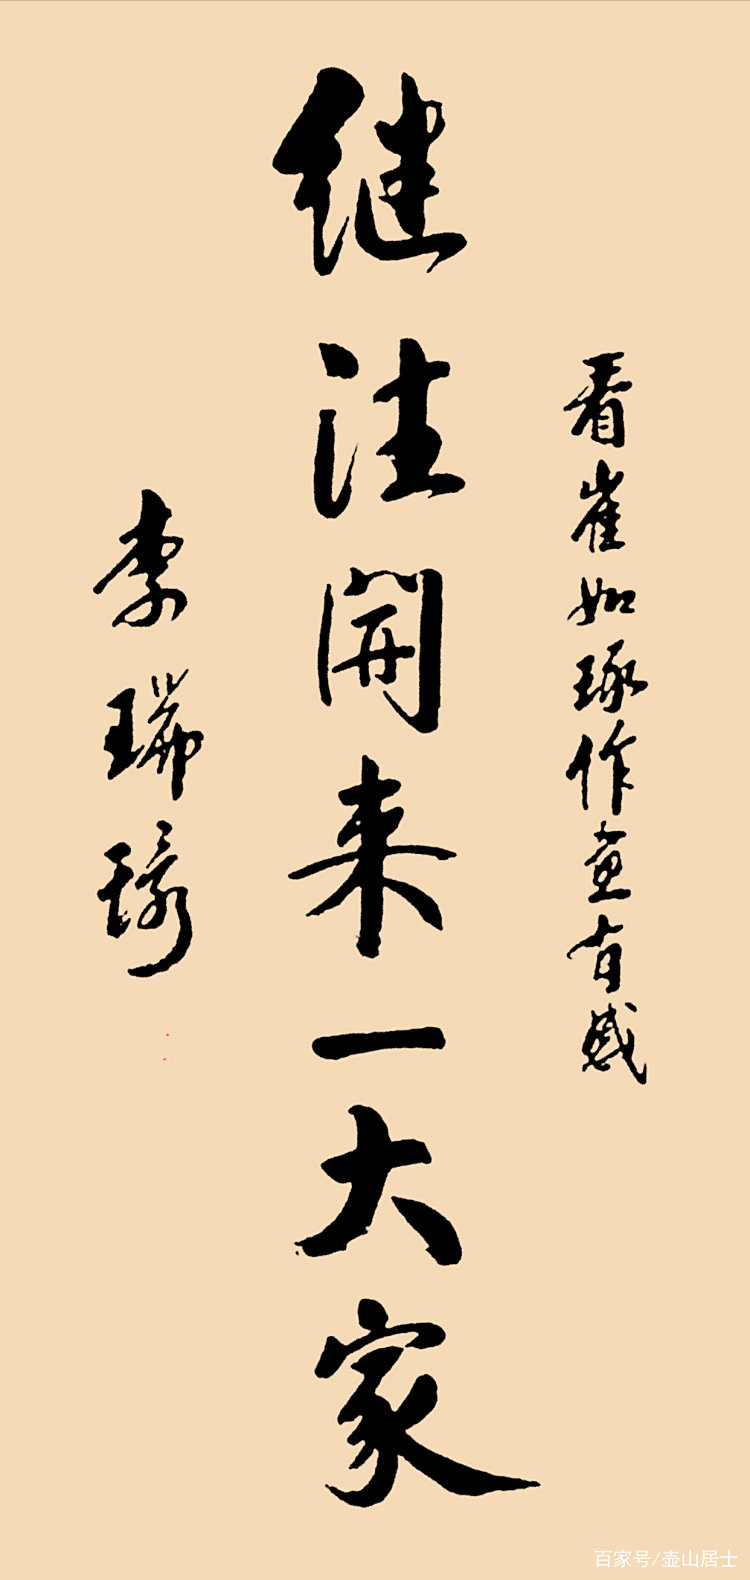 看崔如琢作画有感
继往開来一大家
李瑞環
百家号/壶山居士